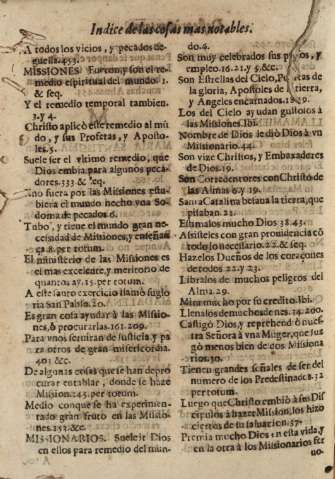 Indice de las cosas mas notables.
A todos los vicios, y pecados de
guella. 453.
MISSIONES. Fueron, y son el re-
medio espiritual del mundo. 1.
& seq.
Y el remedio temporal tambien.
3. y 4.
Christo aplicò este remedio al mũ
do, y sus Profetas, y Aposto-
les. 5.
Suele ser el vltimo remedio, que
Dios embia para algunos peca-
dores. 333. & seq.
no fuera por las Missiones estu-
biera el mundo hecho vna So-
doma de pecados. 6.
Tubo, y tiene el mundo gran ne-
cessidad de Missiones, y enseñan
ça 8. per totum.
El ministerio de las Missiones es
el mas excelente, y meritorio de
quantos, ay. 15. per totum.
A este santo exercicio llamò Sugla
ria san Paulo. 20.
Es gran cosa ayudar à las Missio-
nes, ò procurarlas. 161. 209.
Para vnos serviràn de justicia y pa
ra otros de gran misericordia.
401. &c.
De algunas cosas que se han de pro
curar entablar, donde se haze
Mission. 245. per totum.
Medio con que se ha experimen-
tado gran fruto en las Missio-
nes. 252. &c.
MISSIONARIOS. Suele ir Dios
en ellos para remedio del mun-
do. 4.
Son muy celebrados sus pasos, y
empleo. 16. 21. y 5. &c.
Son Estrellas del Cielo, de
la gloria, Apostoles de tierra,
y Angeles encarnados. 18. 19.
Los del Cielo ayudan gustosos à
los Missiones. Ibi.
Nombre de Dios se diò Dios à vn
Missionario. 44.
Son vize Christos, y Embaxadores
de Dios. 19.
Son Corredentores con Christo de
las Almas 6. y 19.
Santa Catalina besaua la tierra, que
pisaban. 21.
Estimalos mucho Dios 38. 43.
Assisteles con gran providencia cõ
todo lo necessario. 22. & seq.
Hazelos Dueños de los coraçones
de todos 22. y 23.
Libralos de muchos peligros del
Alma. 29.
Mira mucho por su credito. Ibi.
Llenalos de muchos dones. 14. 200.
Castigò Dios, y reprehendiò nuesf
tra Señora à vna Muger, que juz
gò menos bien de dos Missiona
rios. 30.
Tienen grandes señales de ser del
numero de los Predestinados. 32
per totum.
Luego que Christo embiò à sus Dis
cipulos à hazer Mission, los hizo
ciertos de su saluacion. 37.
Premia mucho Dios en esta vida, y
en la otra à los Missionarios fer
uo-